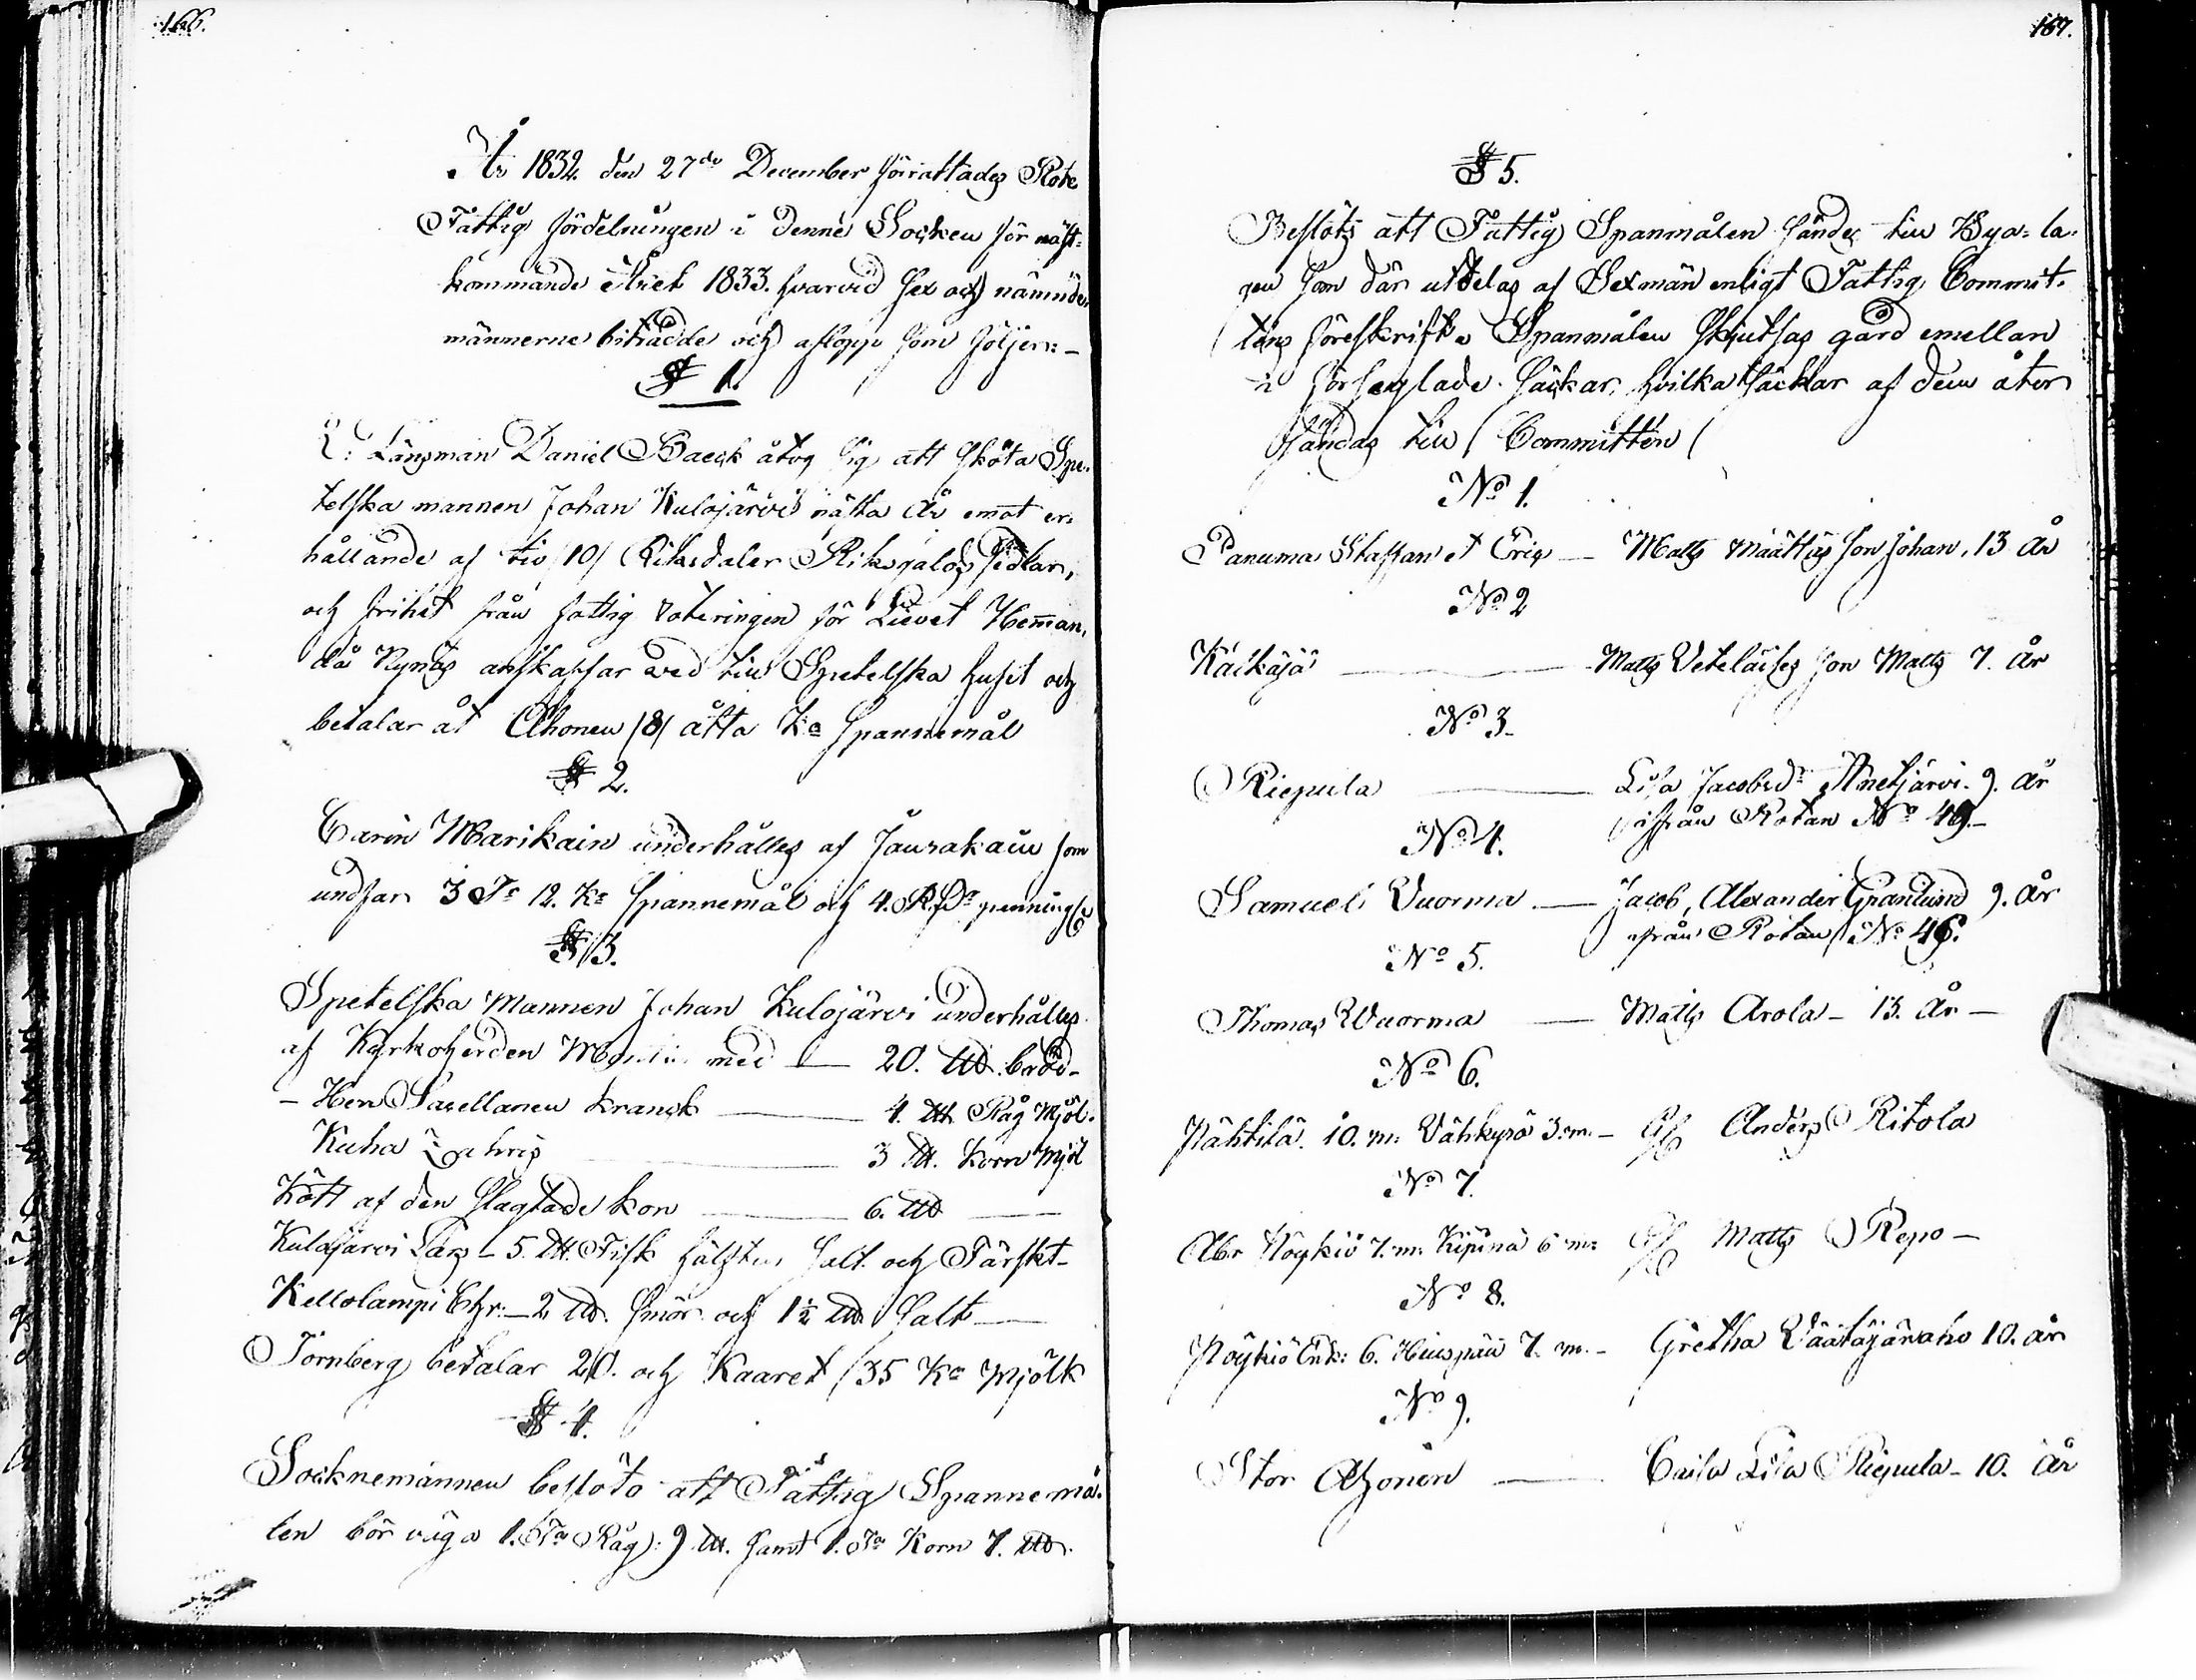 166.
År 1832 den 27de December förrättades Rote
Fattig fördelningen i denne Socken för näst-
kommande Året 1833. hvarvid sex och nämnde-
männerne biträdde och aflopp som följer: -
§ 1.
L: Länsman Daniel Baeck åtog sig att sköta Spe-
telska mannen Johan Kulojärvi nästa År emot er-
hållande af tio /10/ Riksdaler Riksgälds sedlar,
och frihet från fattig roteringen för Lievet Hemman,
då Nynäs anskaffar ved till Spetelska huset och
betalar åt Ahonen /8/ åtta Ka Spannemål
§ 2.
Carin Marikain underhålles af Jaurakain som
undfår 3 Ta 12. Ka Spannemål och 4. RDr penningar
§ 3.
Spetelska Mannen Johan Kulojärvi underhålles
af Kyrkoherden med — 20. ℔ bröd -
- Herr Sacellanen Kranck — 4. ℔ Råg Mjöl.
Kuha — 3 ℔. Korn Mjöl
Kött af den slagtade kon — 6. ℔ —
Kulojärvi Lars - 5. ℔. Fisk hälften salt och Färskt -
Kellolampi Chr: - 2 ℔. smör och 1½ ℔ Salt —
Törnberg betalar 20. och Kaaret /35 Ka Mjölk
§ 4.
Socknemännen beslöto att Fattig Spannemå-
len bör väga 1. Ta Råg: 9 ℔. samt 1. Ta Korn 7. ℔.
167.
§ 5.
Beslöts att Fattig Spanmålen sändes till Bya-la-
gen som där utdelas af Sexmän enligt Fattig Commit-
téns föreskrift. Spanmålen skjutsas gård emellan
i förseglade säckar, hvilka säckar af dem åter
sändas till Committén
No 1.
Panuma Staffan et Eric — Matts Määttäs son Johan, 13 år
No 2
Käikäjä — Matts Veteläises son Matts 7. år
No 3.
Riepula — Lisa Jacobsdr Anetjärvi. 9. år
ifrån Rotan No 49. -
No 4.
Samuel Vuorma — Jacob, Alexander Granlund 9. år
från Rotan No 46.
No 5.
Thomas Wuorma — Matts Arola - 13. år -
No 6.
Nähtilä. 10. m: Vähkyrö 3. m. - Anders Ritola
No 7.
Abr Nöykiö 7. m: Kipinä 6 m: Matts Repo -
No 8.
Nöykiö Enk: 6. 7. m. - Gretha Väätäjänaho 10. år
No 9.
Stor Ahonen — Caisa Lisa Riepula - 10. år